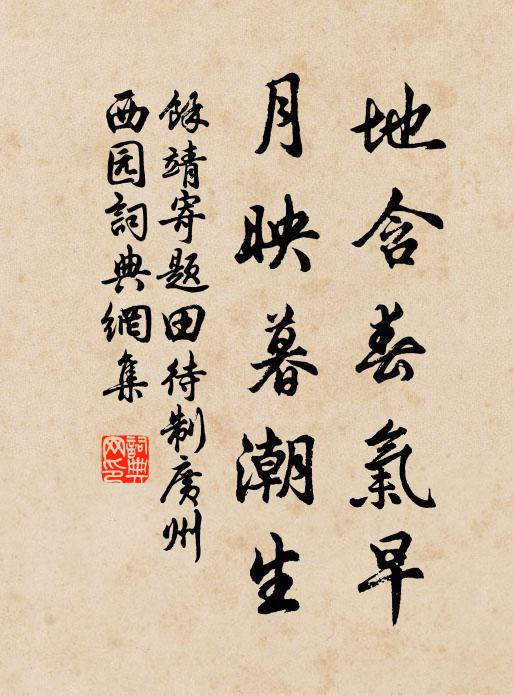 地含春氣早
月映暮潮生
餘靖寄題田待制廣州
西园詞典網集
詞典网印